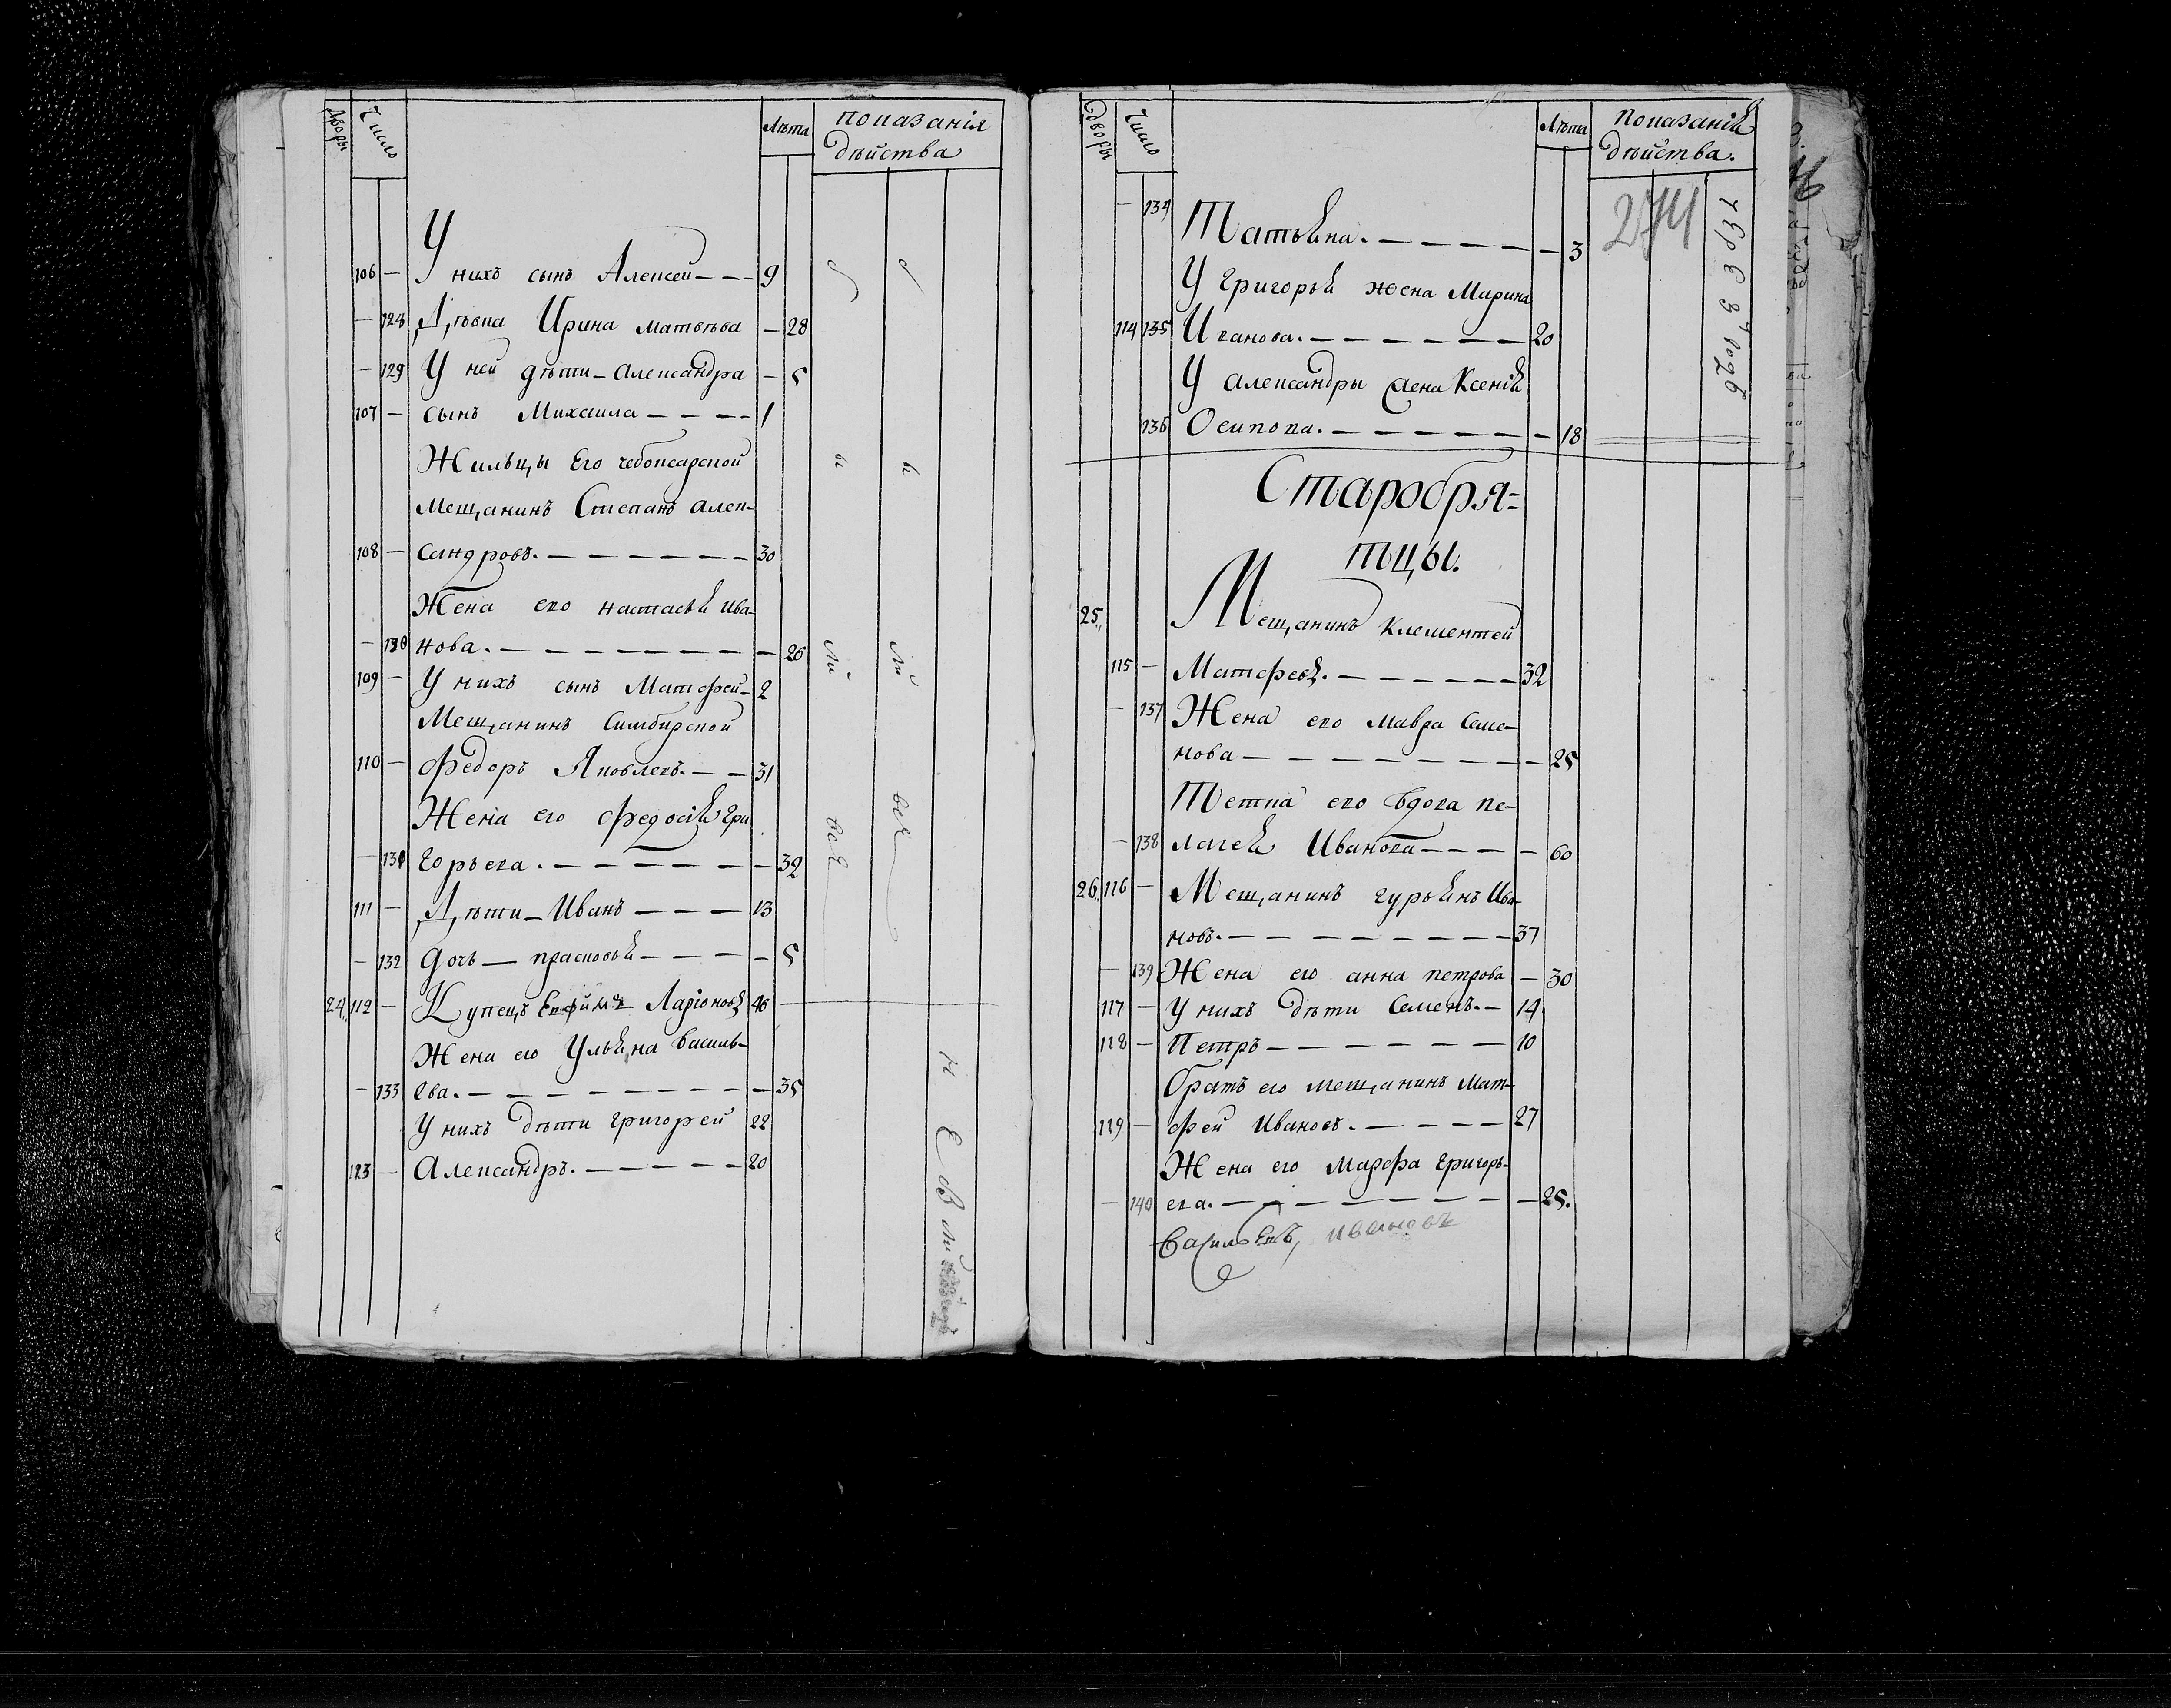 Дворы Число Лѣта показанія
дѣйства
У
106 — нихъ сынъ Алексей — — — 9
— 128 Дѣвка Ирина матвѣева — 28
— 129 У ней дѣти — александра — 5
107 — сынъ Михаила — — — — 1
Жильцы Его чебоксарской
мещанинъ Степанъ алек-
108 — сандровъ. — — — — — — — 30
Жена его настасья ива-
— 130 нова. — — — — — — — — 26
109 — У нихъ сынъ Матфей — 2
Мещанинъ Симбирской
110 — Федоръ Яковлевъ. — — 31
Жена его федосія гри
— 131 горьева. — — — — — — — 32
111 — Дѣти — Иванъ — — — 13
— 132 дочь — прасковья — — — — 5
24. 112 — Купецъ Ефимъ Ларіоновъ 46
Жена его Ульяна василь-
— 133 ева. — — — — — — — — — 35
У нихъ дѣти григорей 22
123 — Александръ. — — — — — 20
Дворы Число Лѣта показанія
дѣйства.
— 134 Татьяна. — — — — — 3
274
У григорья жена Марина
114 135 Иванова. — — — — — — 20
У александры жена Ксенія
136 Осипова. — — — — — — — 18
Старобря-
тцы.
25. Мещанинъ клементей
115 — Матфеевъ. — — — — — — 32
— 137 Жена его мавра семе-
нова — — — — — — — — 25
Тетка его вдова пе-
— 138 лагея Иванова — — — — 60
26. 116 — Мещанинъ гурьянъ Ива-
новъ. — — — — — — — — 37
— 139 Жена его анна петрова — 30
117 — у нихъ дѣти семенъ. — 14
118 — Петръ — — — — — — 10
братъ его мещанинъ мат-
119 — фей Ивановъ. — — — — 27
Жена его марфа григорь-
— 140 ева. — — — — — — — — 25.
ивановъ